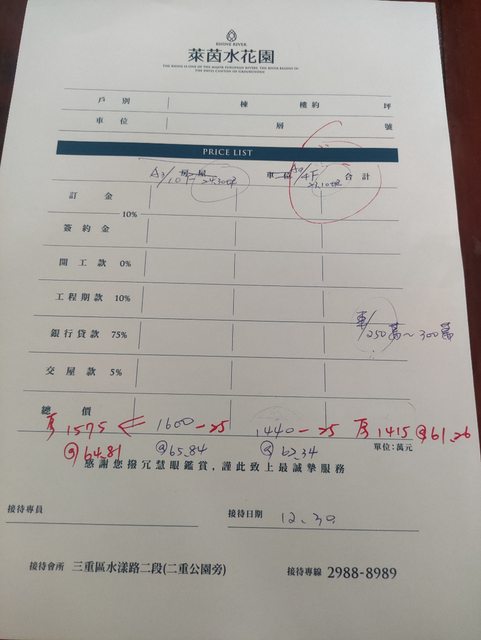 RHINE RIVER
萊茵水花園
THE RHINE IS ONE OF THE MAJOR EUROPEAN RIVERS, THE RIVER BEGINS IN
THE SWISS CANTON OF GRAUBÜNDEN
戶 別 棟 樓約 坪
車 位 層 號
PRICE LIST
A3/10F 房 屋 24.30坪 車 位 A10/4F 23.10坪 合 計
訂 金
10%
簽 約 金
開 工 款 0%
工 程 期 款 10%
車/250萬~300萬
銀 行 貸 款 75%
交 屋 款 5%
總 價
房 1575 ← 1600 -25 1440 -25 房 1415 @61.26
@64.81 @65.84 @62.34 單位:萬元
感謝您撥冗慧眼鑑賞,謹此致上最誠摯服務
接待專員 接待日期 12.30.
接待會所 三重區水漾路二段(二重公園旁) 接待專線 2988-8989